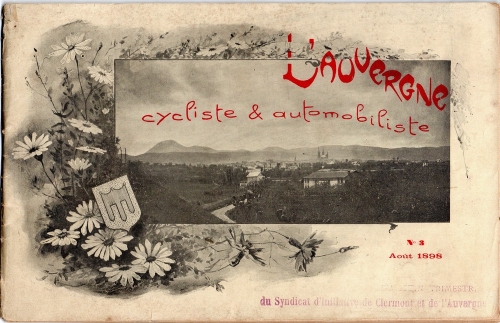 L'AUVERGNE
cycliste & automobiliste
N° 3
Août 1898
TRIMESTRE,
du Syndicat d'Initiative de Clermont et de l'Auvergne